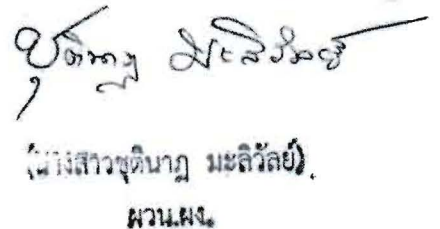 ชุตินาฏ มะลิวัลย์
(นางสาวชุตินาฏ มะลิวัลย์)
ผวน.ผง.